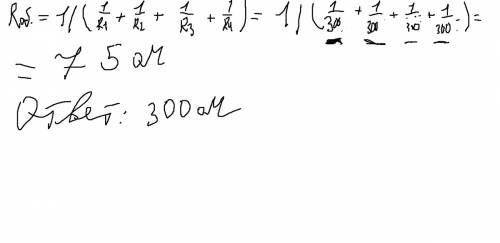 Rоб. = 1/(1/R1 + 1/R2 + 1/R3 + 1/R4) = 1/(1/300 + 1/300 + 1/300 + 1/300) =
= 75 ом
Ответ: 300 ом